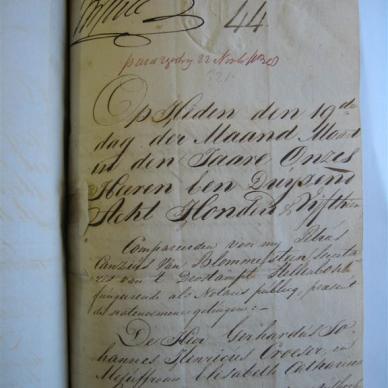 44
22
Op Heden den 19de
dag der Maand Maart
in den Jaare Onzes
Heeren Een Duyzend
Acht Honderd & Vyfthien
Compareerden voor my Petrus
Canzius van Blommestein Secreta-
ris van 't Stellenbosch
fungeerende als Notaris publicq, present
de natenoemene getuigen:-
De Heer Gerhardus Jo-
hannes Henricus Croeser, en
Mejuffrouw Elisabeth Catharina